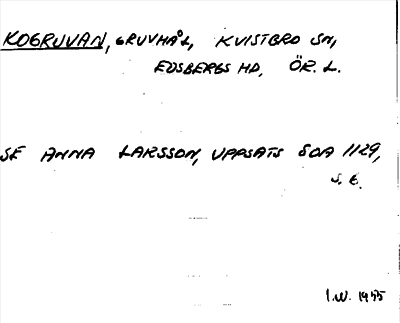 KOGRUVAN, GRUVHÅL, KVISTBRO SN,
EDSBERGS HD, ÖR. L.
SE ANNA LARSSON, UPPSATS SOA 1129,
S. 6.
I.W. 1955